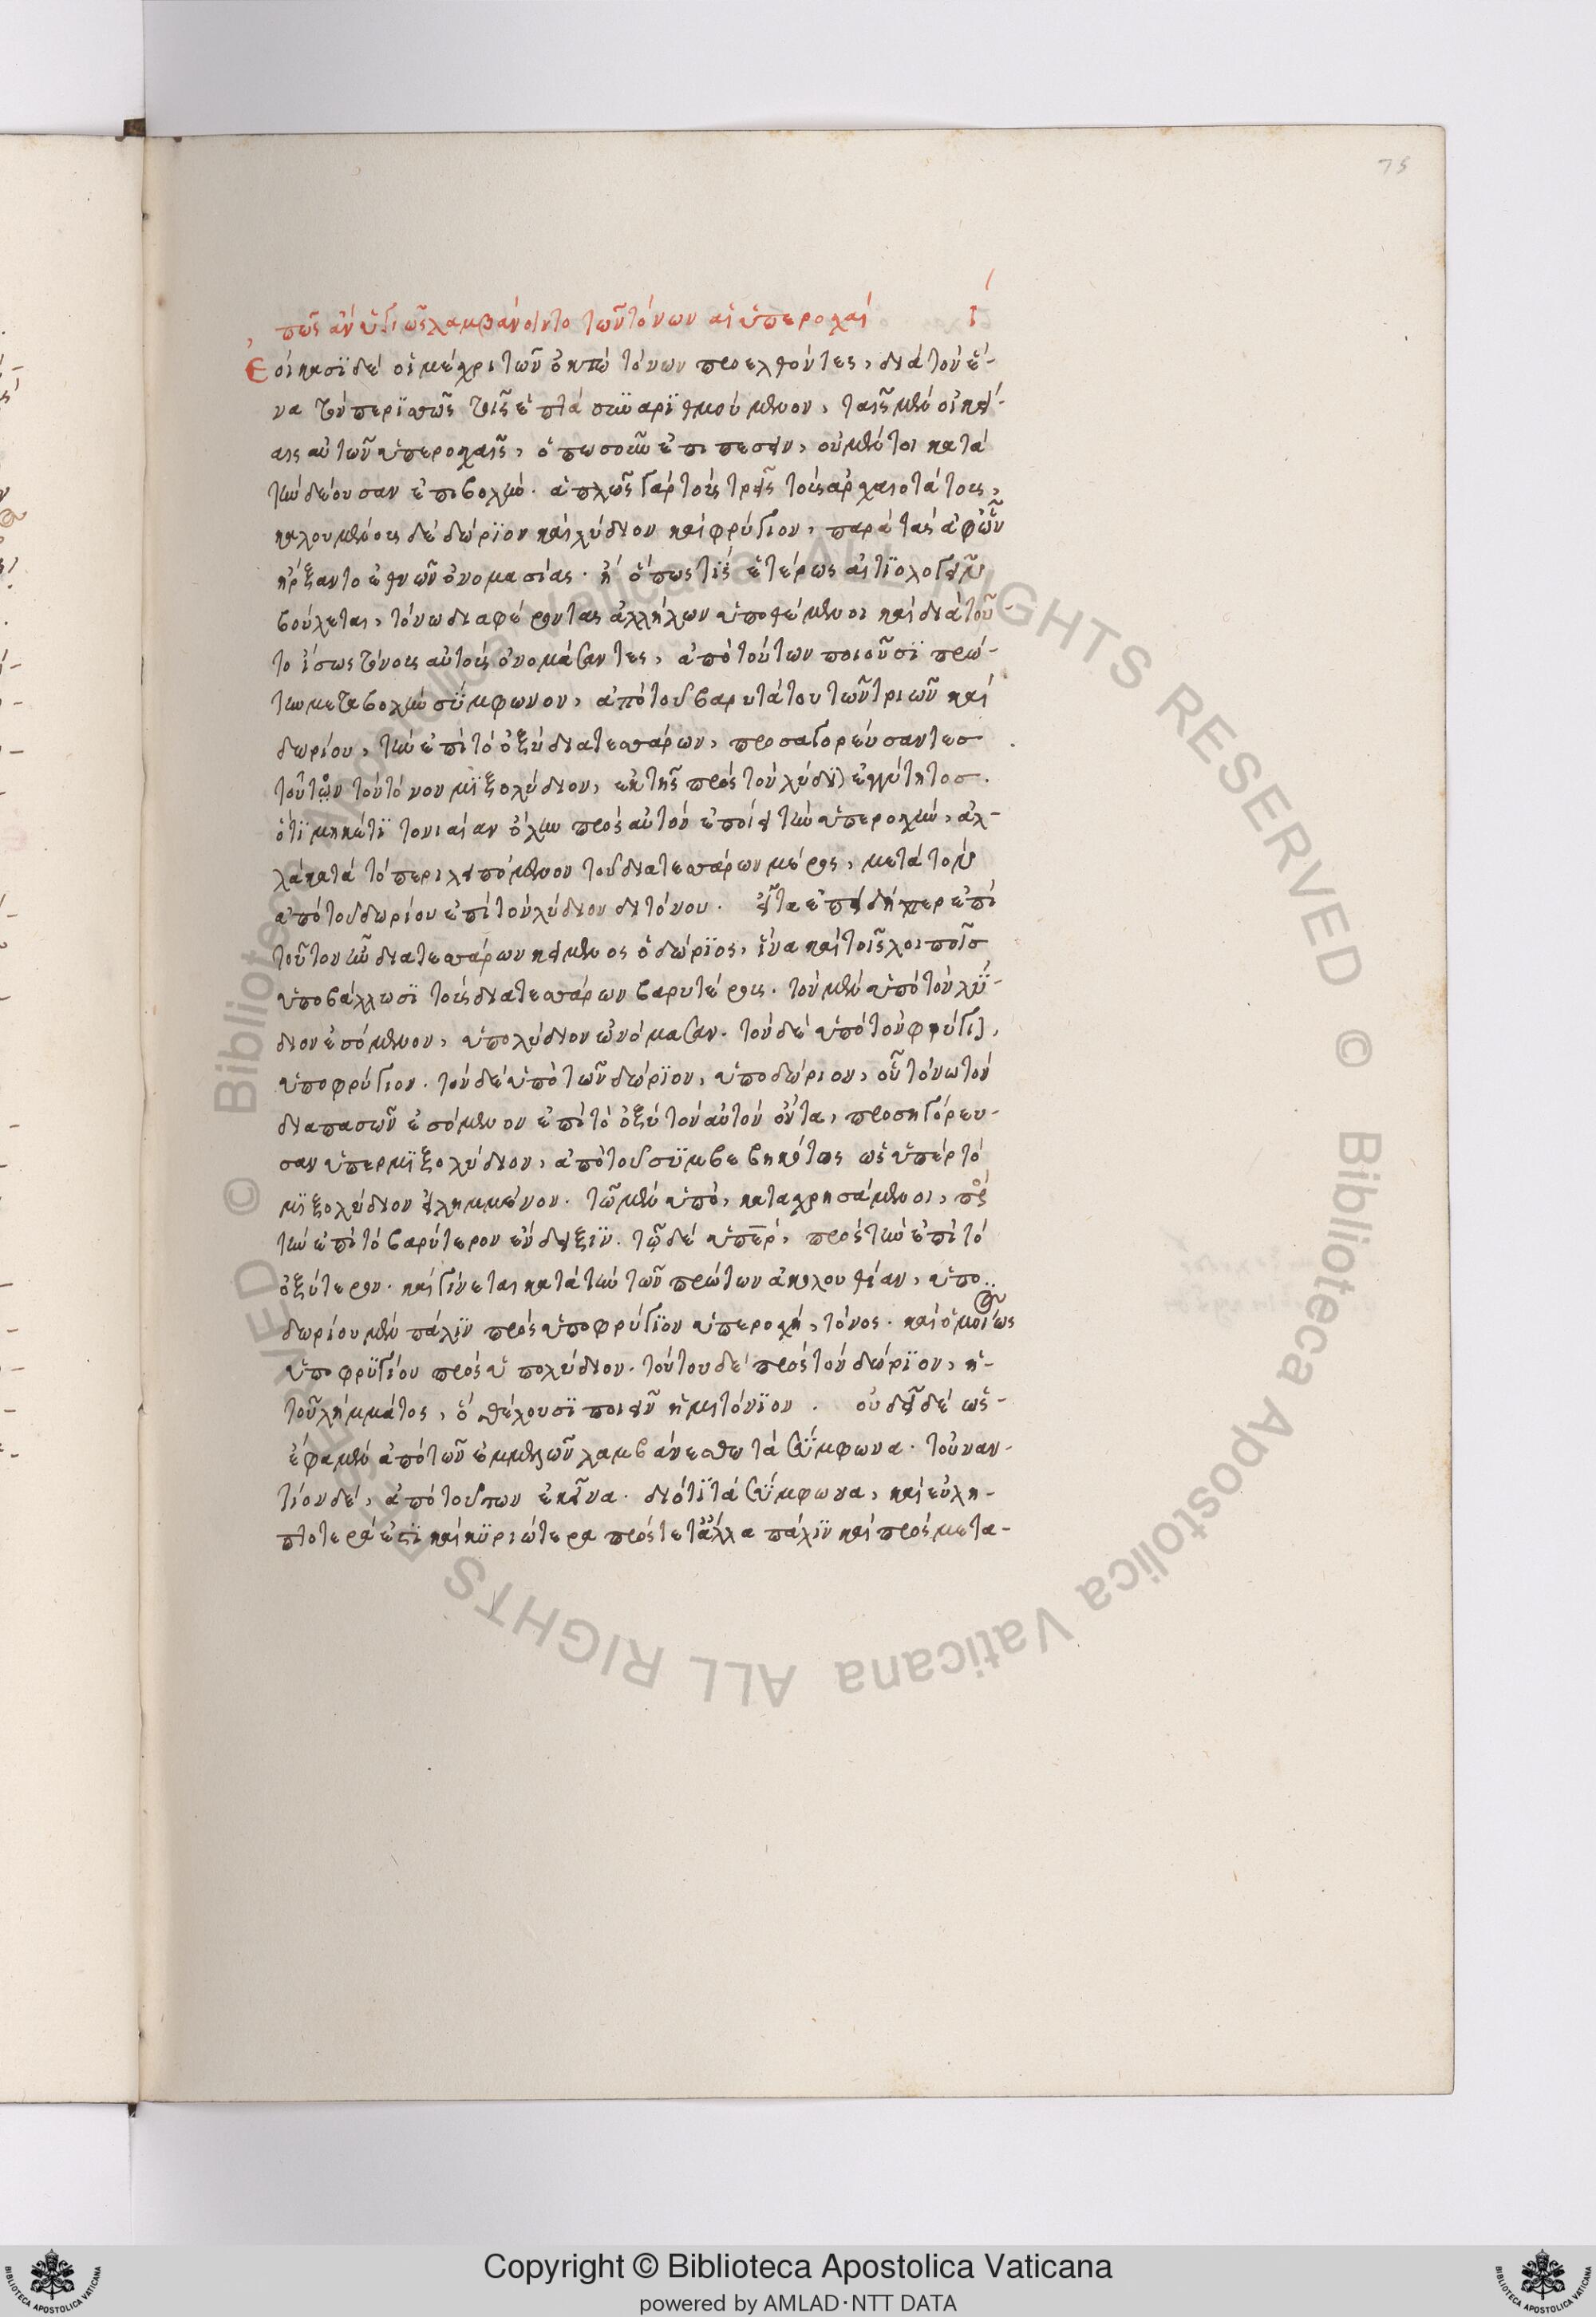 75
πῶς ἂν ὑγιῶς λαμβάνοιντο τῶν τόνων αἱ ὑπεροχαί ι
Ἐοίκασϊ δὲ οἱ μέχρι τῶν ὀκτὼ τόνων προελθόντες, διὰ τὸν ἕ-
να τὸν περϊσσῶς τοῖς ἑπτὰ σϋναρϊθμούμενον, ταῖς μὲν οἰκεί-
αις αὐτῶν ὑπεροχαῖς, ὁπωσοῦν ἐπιπεσεῖν, οὐ μέντοι κατὰ
τὴν δέουσαν ἐπιβολήν. ἁπλῶς γὰρ τοὺς τρεῖς τοὺς ἀρχαιοτάτους,
καλουμένους δὲ δώρϊον καὶ λύδιον καὶ φρύγιον, παρὰ τὰς ἀφ' ὧν
ἤρξαντο ἐθνῶν ὀνομασίας. ἢ ὅπως τϊς ἑτέρως αἰτϊολογεῖν
βούλεται, τόνω διαφέροντας ἀλλήλων ὑποθέμενοι καὶ διὰ τοῦ-
το ἴσως τόνους αὐτοὺς ὀνομάσαντες, ἀπὸ τούτων ποιοῦσϊ πρώ-
την μεταβολὴν σύμφωνον, ἀπὸ τοῦ βαρυτάτου τῶν τριῶν καὶ
δωρίου, τὴν ἐπὶ τὸ ὀξὺ διατεσσάρων, προσαγορεύσαντεσ
τοῦτον τὸν τόνον μϊξολύδιον, ἐκ τῆς πρὸς τὸν λύδιον ἐγγύτητοσ.
ὅτϊ μηκέτϊ τονιαίαν ὅλην πρὸς αὐτὸν ἐποίει τὴν ὑπεροχήν, ἀλ-
λὰ κατὰ τὸ περιλειπόμενον τοῦ διατεσσάρων μέρος, μετὰ τὸ
ἀπὸ τοῦ δωρίου ἐπὶ τὸν λύδιον διτόνου. εἶτα ἐπειδήπερ ἐπὶ
τοῦτον ἦν διατεσσάρων κείμενος ὁ δώρϊος, ἵνα καὶ τοῖς λοιποῖσ
ὑποβάλλωσϊ τοὺς διατεσσάρων βαρυτέρους. τὸν μὲν ὑπὸ τὸν λύ-
διον ἐσόμενον, ὑπολύδιον ὠνόμασαν. τὸν δὲ ὑπὸ τὸν φρύγιον,
ὑποφρύγιον. τὸν δὲ ὑπὸ τῶν δώρϊον, ὑποδώριον, οὗ τόνω τὸν
διαπασῶν ἐσόμενον ἐπὶ τὸ ὀξὺ τὸν αὐτὸν ὄντα, προσηγόρευ-
σαν ὑπερμϊξολύδιον, ἀπὸ τοῦ σϋμβεβηκότος ὡς ὑπὲρ τὸ
μϊξολύδιον εἰλημμένον. τῶ μὲν ὑπὸ, καταχρησάμενοι, πρὸς
τὴν ἐπὶ τὸ βαρύτερον ἔνδειξϊν. τῷ δὲ ὑπὲρ, πρὸς τὴν ἐπὶ τὸ
ὀξύτερον. καὶ γίνεται κατὰ τὴν τῶν πρώτων ἀκολουθίαν, ὑπο
δωρίου μὲν πάλϊν πρὸς ὑποφρύγϊον ὑπεροχή, τόνος. καὶ ὁμοίως
ὑποφρϋγίου πρὸς ὑπολύδιον. τούτου δὲ πρὸς τὸν δώρϊον, ἡ
τοῦ λήμματος, ὃ θέλουσϊ ποιεῖν ἡμιτόνϊον. οὐ δεῖ δὲ ὡς
ἔφαμεν ἀπὸ τῶν ἐμμελῶν λαμβάνεσθω τὰ σύμφωνα. τοὐναν-
τίον δὲ, ἀπὸ τούτων ἐκεῖνα. διότϊ τὰ σύμφωνα, καὶ εὐλη-
πτότερα ἐστϊ καὶ κϋριώτερα πρός τε τἄλλα πάλϊν καὶ πρὸς μετα-
Copyright © Biblioteca Apostolica Vaticana
powered by AMLAD·NTT DATA